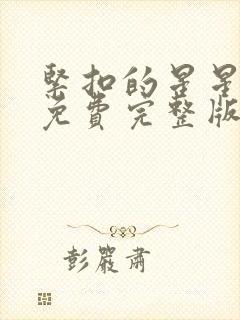 緊扣的星星
免費完整版
彭嚴肅